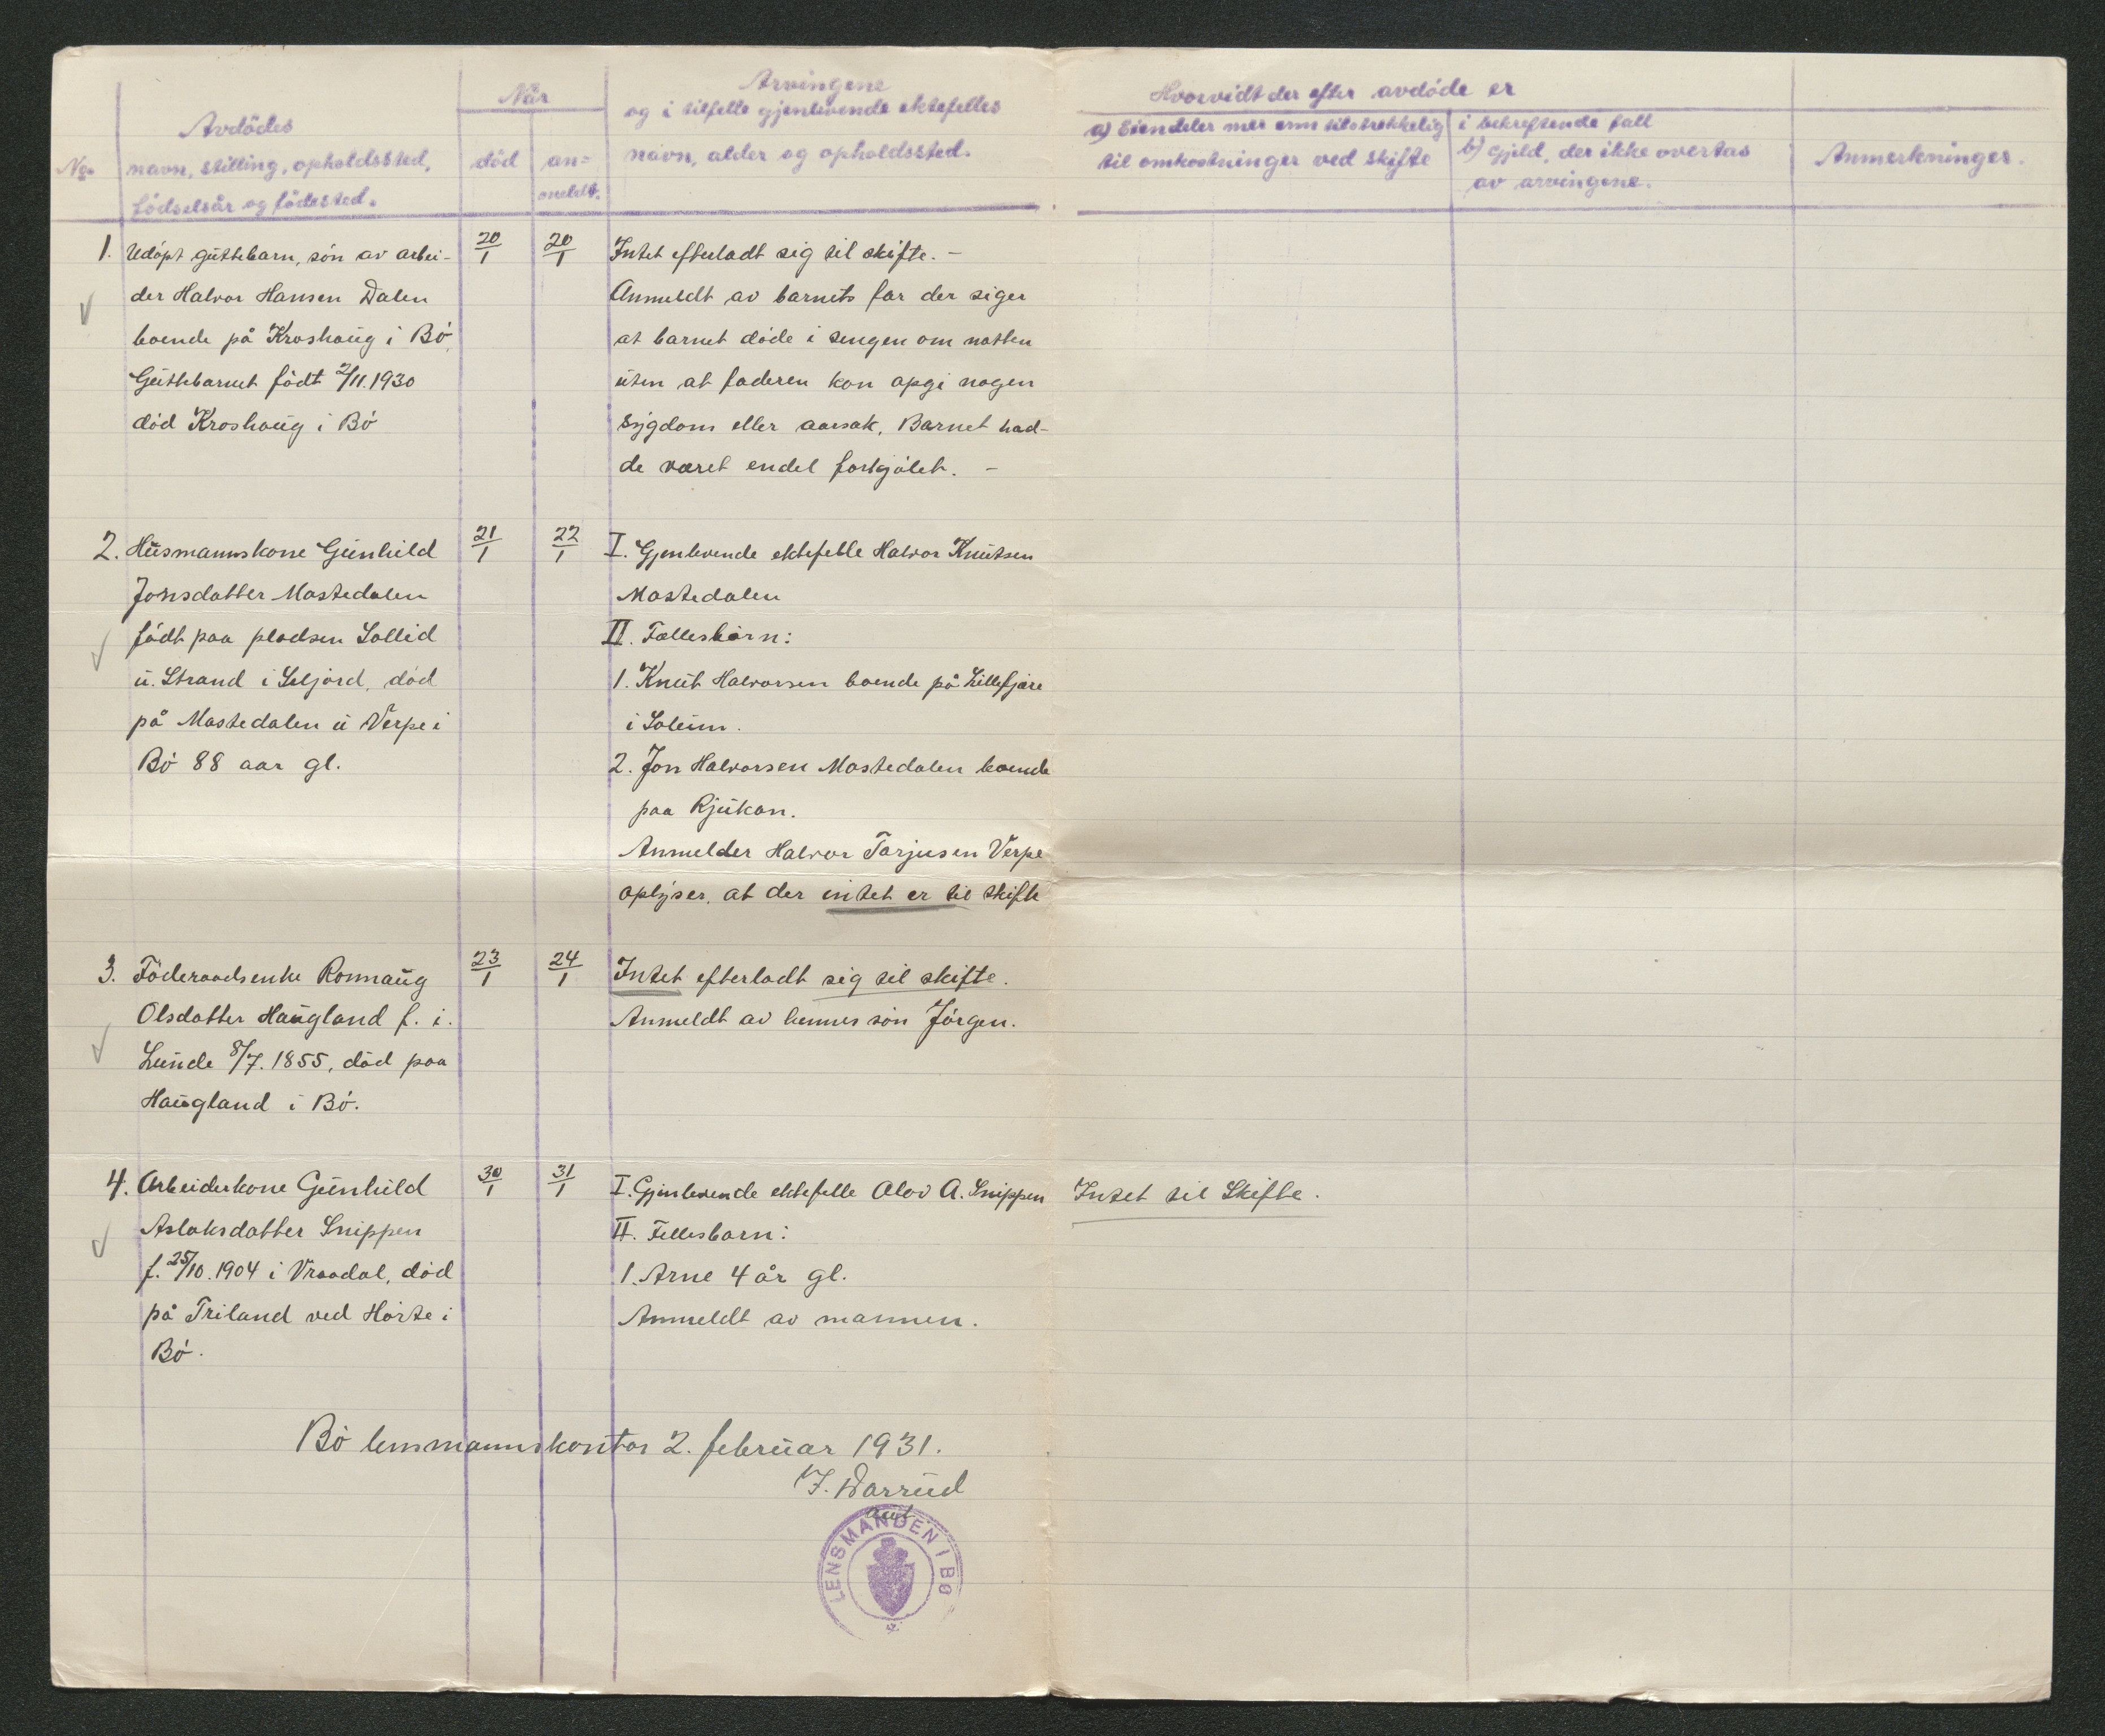 No.
Avdödes
navn, stilling, opholdssted,
födselsår og födested.
Når
död
an=
meldt.
Arvingene
og i tilfelle gjenlevende ektefelles
navn, alder og opholdssted.
Hvorvidt der efter avdöde er
a) Eiendeler mer enn tilstrekkelig
til omkostninger ved skifte
i bekreftende fall
b) Gjeld, der ikke overtas
av arvingene.
Anmerkninger.
1. Udöpt guttebarn, sön av arbei-
der Halvor Hansen Dalen
boende på Kroshaug i Bö
Guttebarnet födt 2/11.1930
död Kroshaug i Bö
20/1
20/1
Intet efterladt sig til skifte. -
Anmeldt av barnets far der siger
at barnet döde i sengen om natten
uten at faderen kan opgi nogen
sygdom eller aarsak. Barnet had-
de været endel forkjölet. -
2. Husmannskone Gunhild
Jonsdatter Mastedalen
födt paa pladsen Sollid
u. Strand i Seljord, död
på Mastedalen u Verpe i
Bö 88 aar gl.
21/1
22/1
I. Gjenlevende ektefelle Halvor Knutsen
Mastedalen
II. Fællesbörn:
1. Knut Halvorsen boende på Lillefjære
i Solum.
2. Jon Halvorsen Mastedalen boende
paa Rjukan.
Anmelder Halvor Tarjusen Verpe
oplyser, at der intet er til skifte
3. Föderaadsenke Ronnaug
Olsdatter Haugland f. i.
Lunde 8/7.1855, död paa
Haugland i Bö.
23/1
24/1
Intet efterladt sig til skifte.
Anmeldt av hennes sön Jörgen.
4. Arbeiderkone Gunhild
Aslaksdatter Snippen
f. 25/10.1904 i Vraadal, död
på Triland ved Hörte i
Bö.
30/1
31/1
I. Gjenlevende ektefelle Olav A. Snippen
II. Fellesbarn:
1. Arne 4 år gl.
Anmeldt av mannen.
Intet til Skifte.
Bö lensmannskontor 2. februar 1931.
J. Darrud
aut
LENSMANDEN I BØ